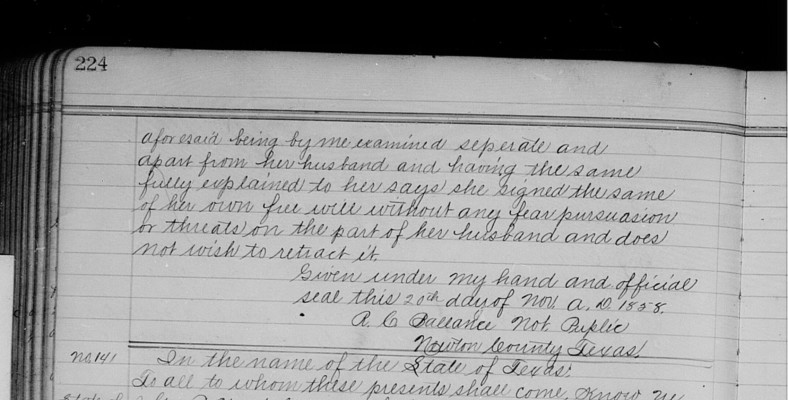 224
aforesaid being by me examined seperate and
apart from her husband and having the same
fully explained to her says she signed the same
of her own free will without any fear pursuasion
or threats on the part of her husband and does
not wish to retract it
Given under my hand and official
seal this 20th day of Nov. A. D. 1858.
R. C. Not. Public
Newton County Texas.
No. 141 In the name of the State of Texas.
To all to whom these presents shall come, Know Ye
State of